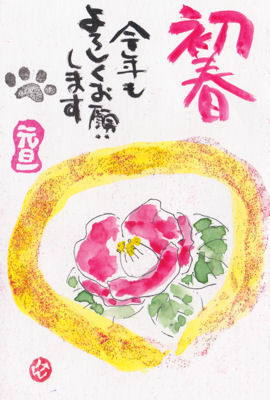 初春
今年も
よろしくお願い
します
元旦